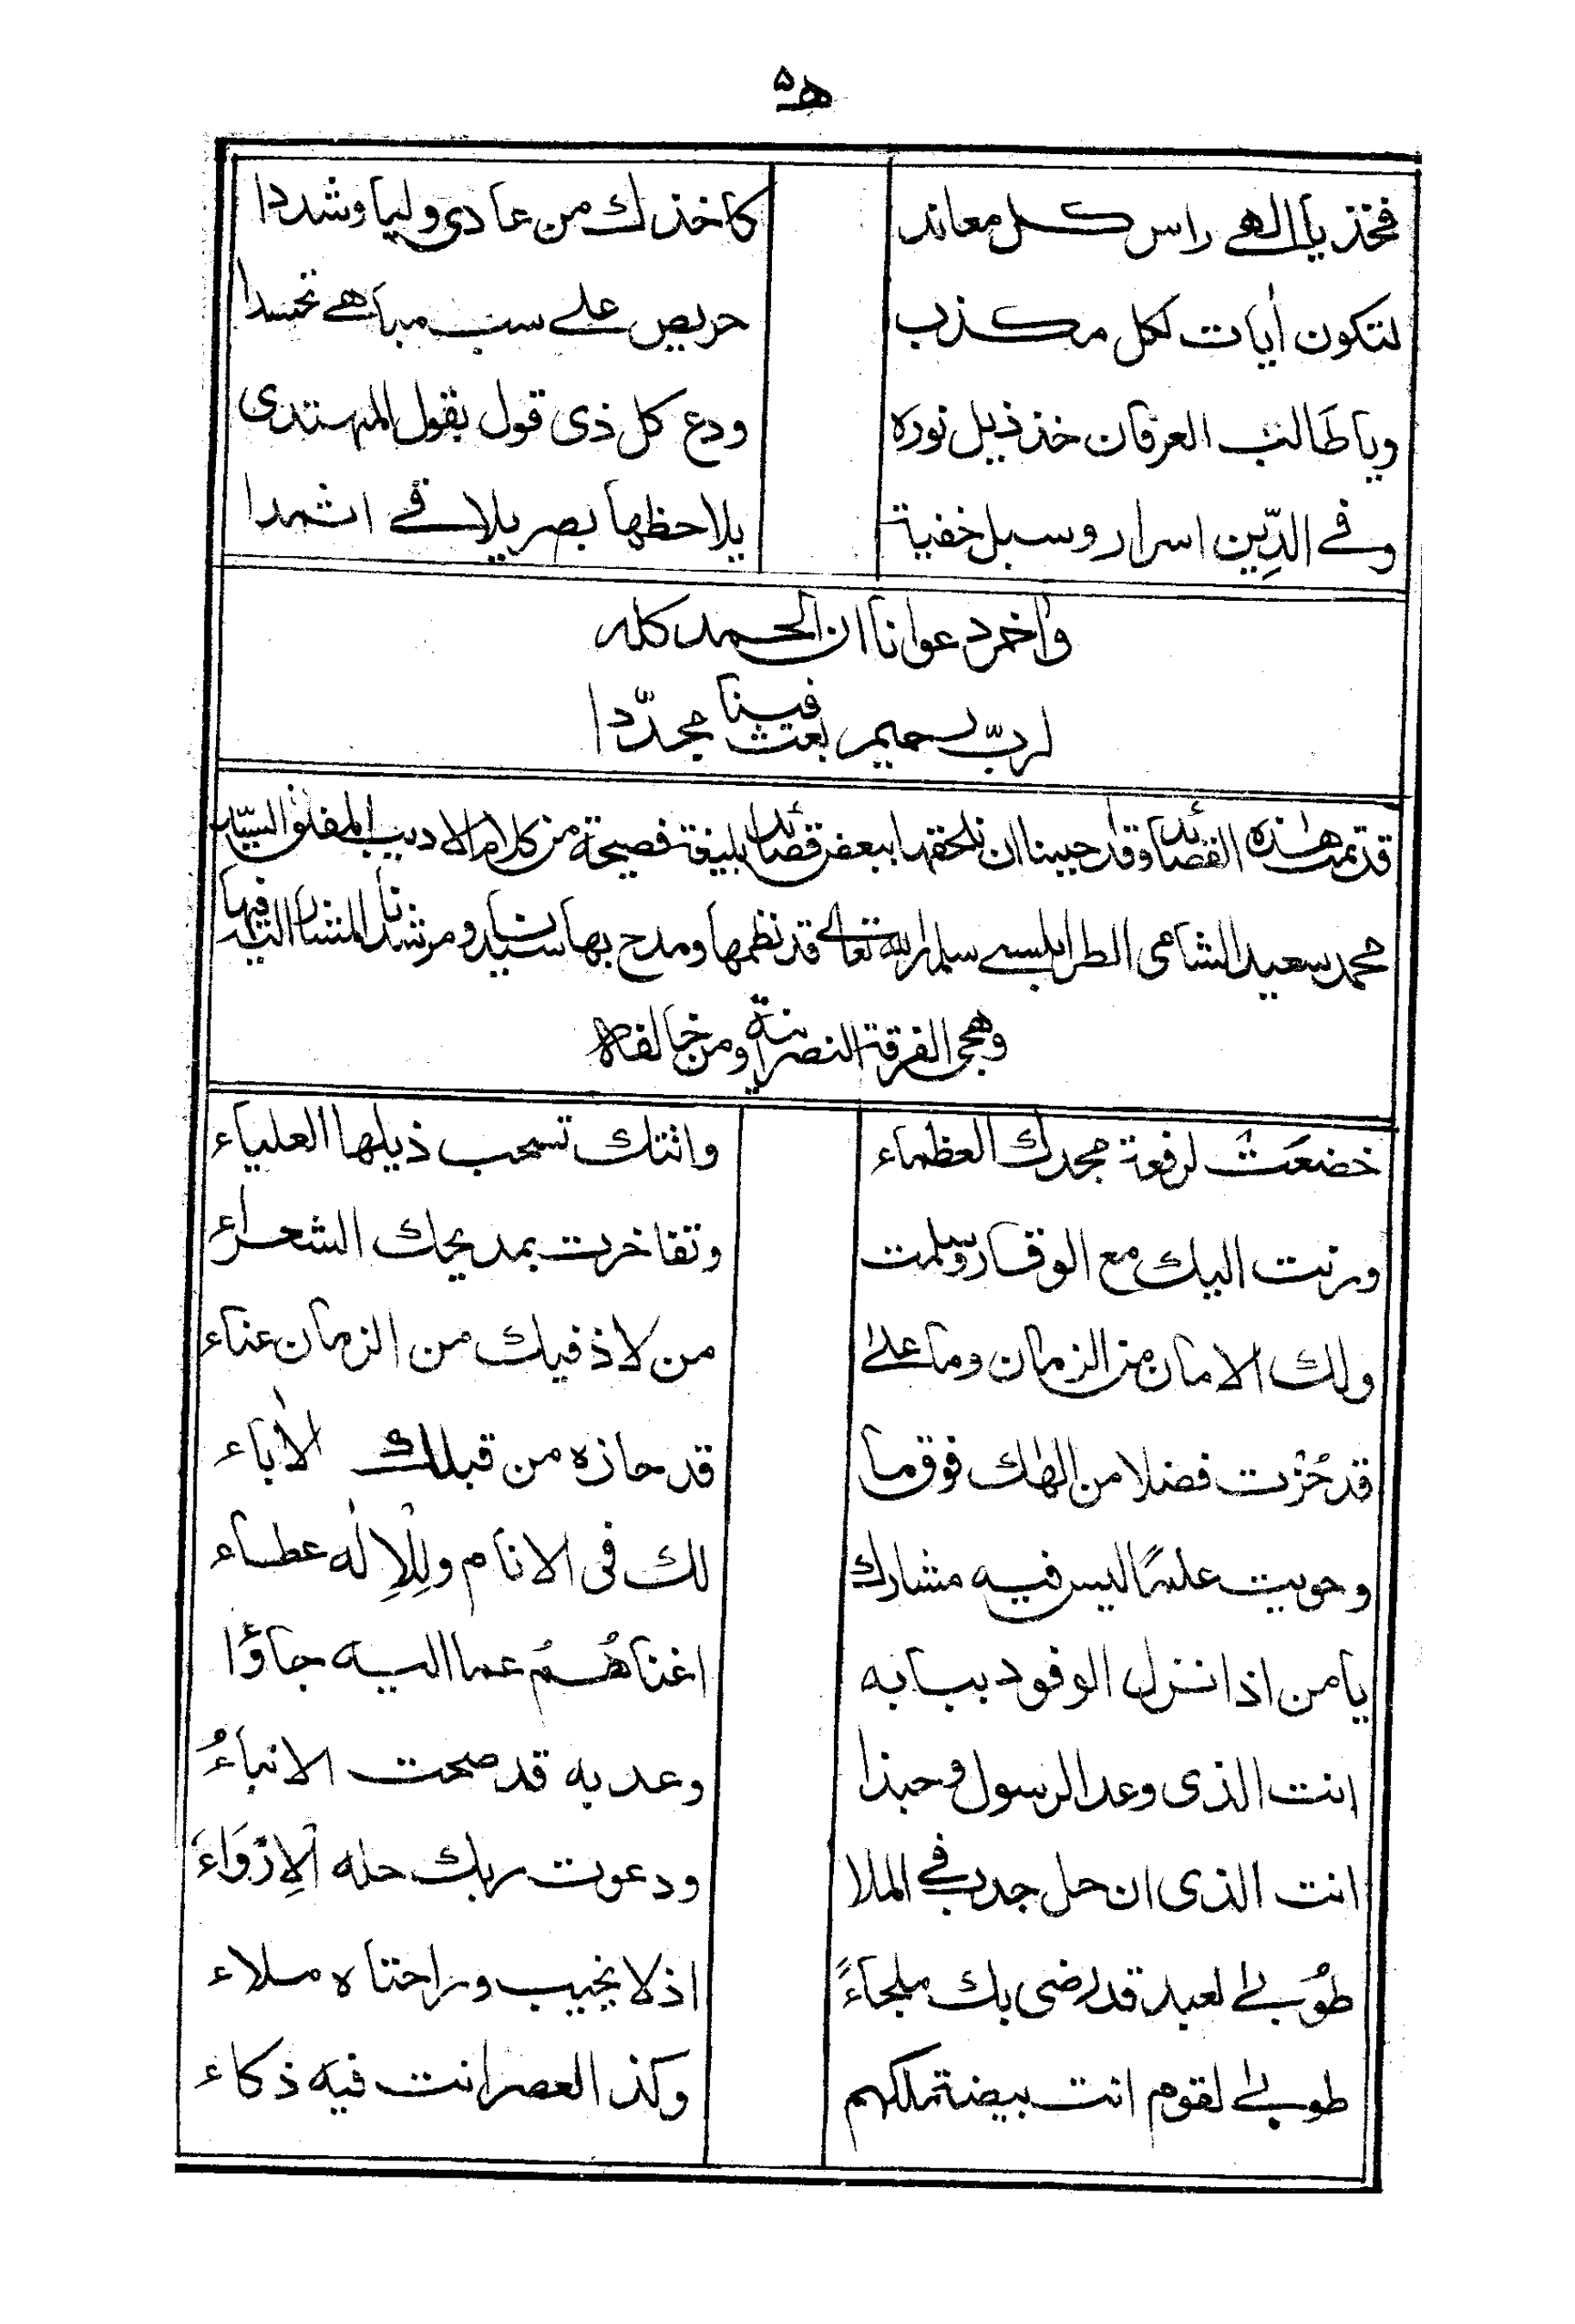 ۵ه
فخذ يا الهى راس كل معاند كاخذك من عادى وليا وشددا
لتكون أيات لكل مكذب حريص على سب مباهى تحسدا
ويا طالب العرفان خذ ذيل نوره ودع كل ذى قول بقول المهتدى
وفى الدِّين اسرار وسبل خفية يلاحظها بصر يلاقى اثمدا
وأخر دعوانا ان الحمد كله
لربّ رحيم بعث فينا مجدّدا
قد تمت هذه القصائد وقد احببنا ان نلحقها ببعض قصائد بليغة فصيحة من كلام الاديب المفلق السيّد
محمد سعيد الشامى الطرابلسى سلمه الله تعالى قد نظمها ومدح بها سيدنا ومرشدنا المشار اليه فيها
وهجى الفرقة النصرانية ومن خالفه
خضعَتْ لرفعة مجدك العظماء واتتك تسحب ذيلها العلياء
ورنت اليك مع الوقار وسلمت وتفاخرت بمديحك الشعراء
ولك الامان من الزمان وما على من لاذ فيك من الزمان عناء
قد حُزْت فضلا من الهك فوق ما قد حازه من قبلك الأباء
وحويت علمًا ليس فيه مشارك لك فى الانام ولِلْاِلٰه عطاء
يا من اذا نزل الوفود ببابه اغناهُمُ عما اليه جاؤا
انت الذى وعد الرسول وحبذا وعد به قد صحت الانباءُ
انت الذى ان حل جدب فى الملا ودعوت ربك حله الِارْوَاءَ
طُوبىٰ لعبد قد رضى بك ملجاءً اذ لا يخيب وراحتاه ملاء
طوبىٰ لقوم انت بيضة ملكهم وكذا العصر انت فيه ذكاء